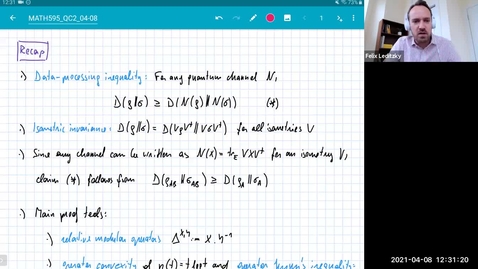 12:31
75%
MATH595_QC2_04-08
1
Felix Leditzky
Recap
·) Data-processing inequality: For any quantum channel N,
D(ρ‖σ) ≥ D(N(ρ)‖N(σ)) (*)
·) Isometric invariance: D(ρ‖σ) = D(VρV†‖VσV†) for all isometries V
·) Since any channel can be written as N(X) = tr_E VXV† for an isometry V,
claim (*) follows from D(ρ_AB‖σ_AB) ≥ D(ρ_A‖σ_A)
·) Main proof tools:
·) relative modular operators Δ^{X,Y} := X · Y⁻¹
·) operator convexity of η(t) = t log t and operator Jensen's inequality:
2021-04-08 12:31:20